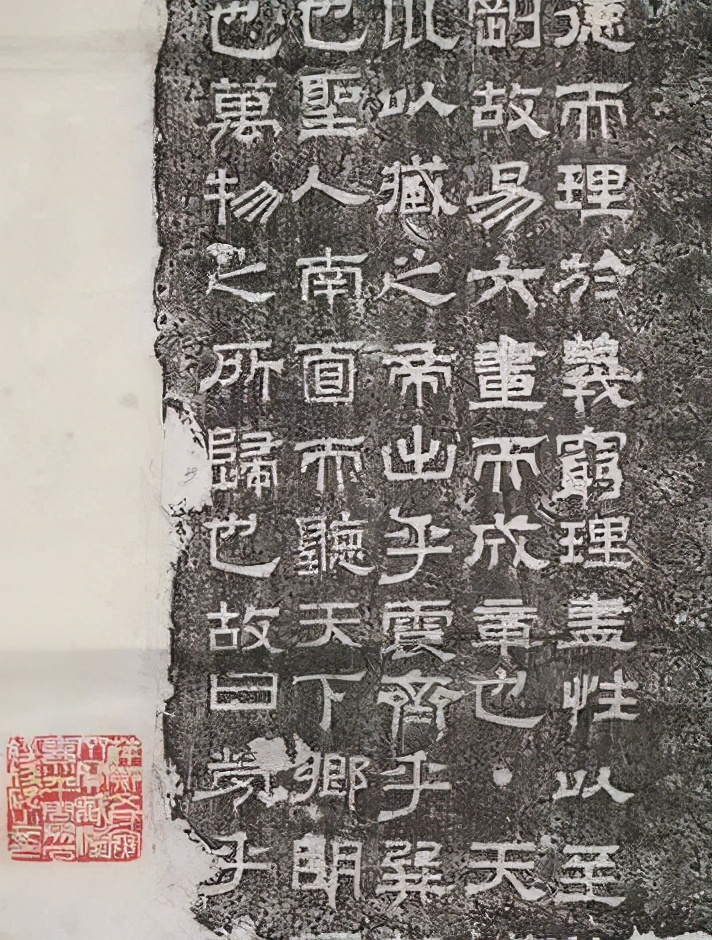 德而理於義窮理盡性以至
剛故易六畫而成章也·天
川以藏之帝出乎震齊乎巽
也聖人南面而聽天下鄉明
也萬物之所歸也故曰勞乎